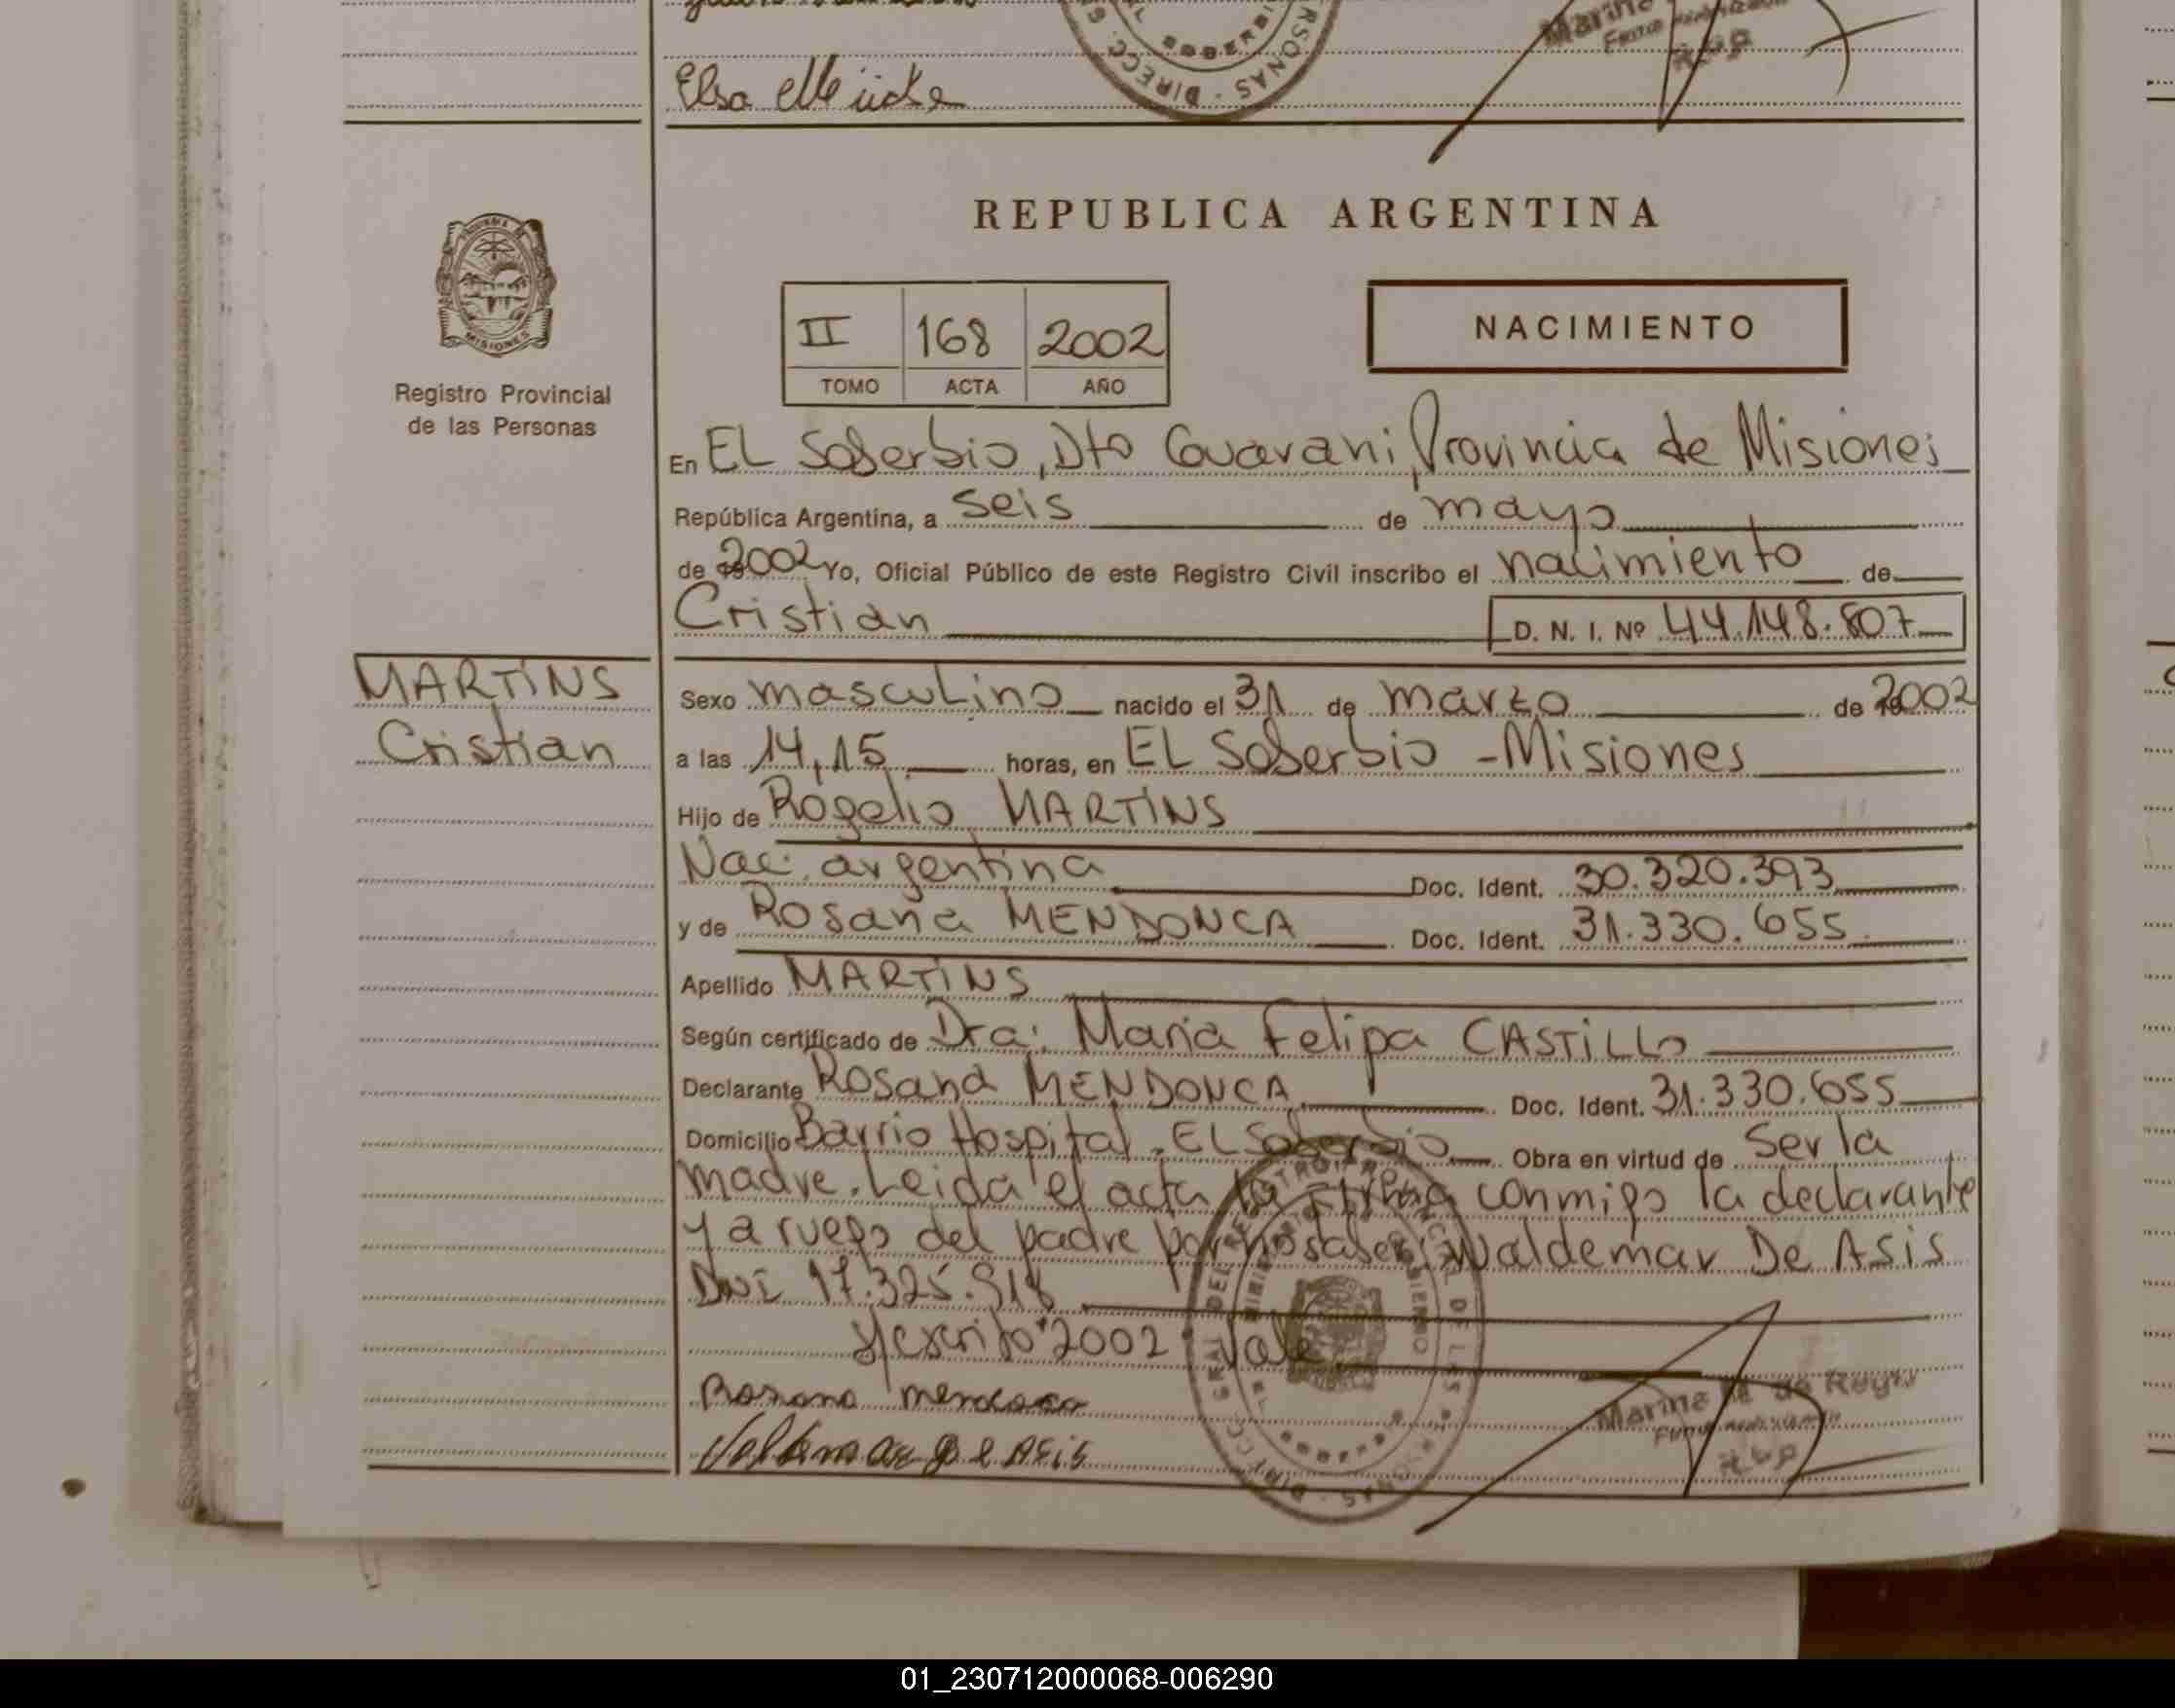 Elsa Mücke
REPUBLICA ARGENTINA
Registro Provincial
de las Personas
II 168 2002
TOMO ACTA AÑO
NACIMIENTO
En EL Soberbio, Dto Guarani, Provincia de Misiones
República Argentina, a seis de mayo
de 2002 Yo, Oficial Público de este Registro Civil inscribo el nacimiento de
Cristian D. N. I. Nº 44.148.807
MARTINS
Cristian
Sexo masculino nacido el 31 de marzo de 2002
a las 14,15 horas, en EL Soberbio - Misiones
Hijo de Rogelio MARTINS
Nac. argentina Doc. Ident. 30.320.393
y de Rosana MENDONCA Doc. Ident. 31.330.655
Apellido MARTINS
Según certificado de Dra: Maria Felipa CASTILLO
Declarante Rosana MENDONCA Doc. Ident. 31.330.655
Domicilio Barrio Hospital - EL Soberbio Obra en virtud de ser la
madre. Leida el acta la firma conmigo la declarante
y a ruego del padre por no saber; Waldemar De Asis
DNI 17.325.918
s/escrito "2002" Vale
Rosana mendonca
Valdemar de Asis
Marina M. de
01_230712000068-006290